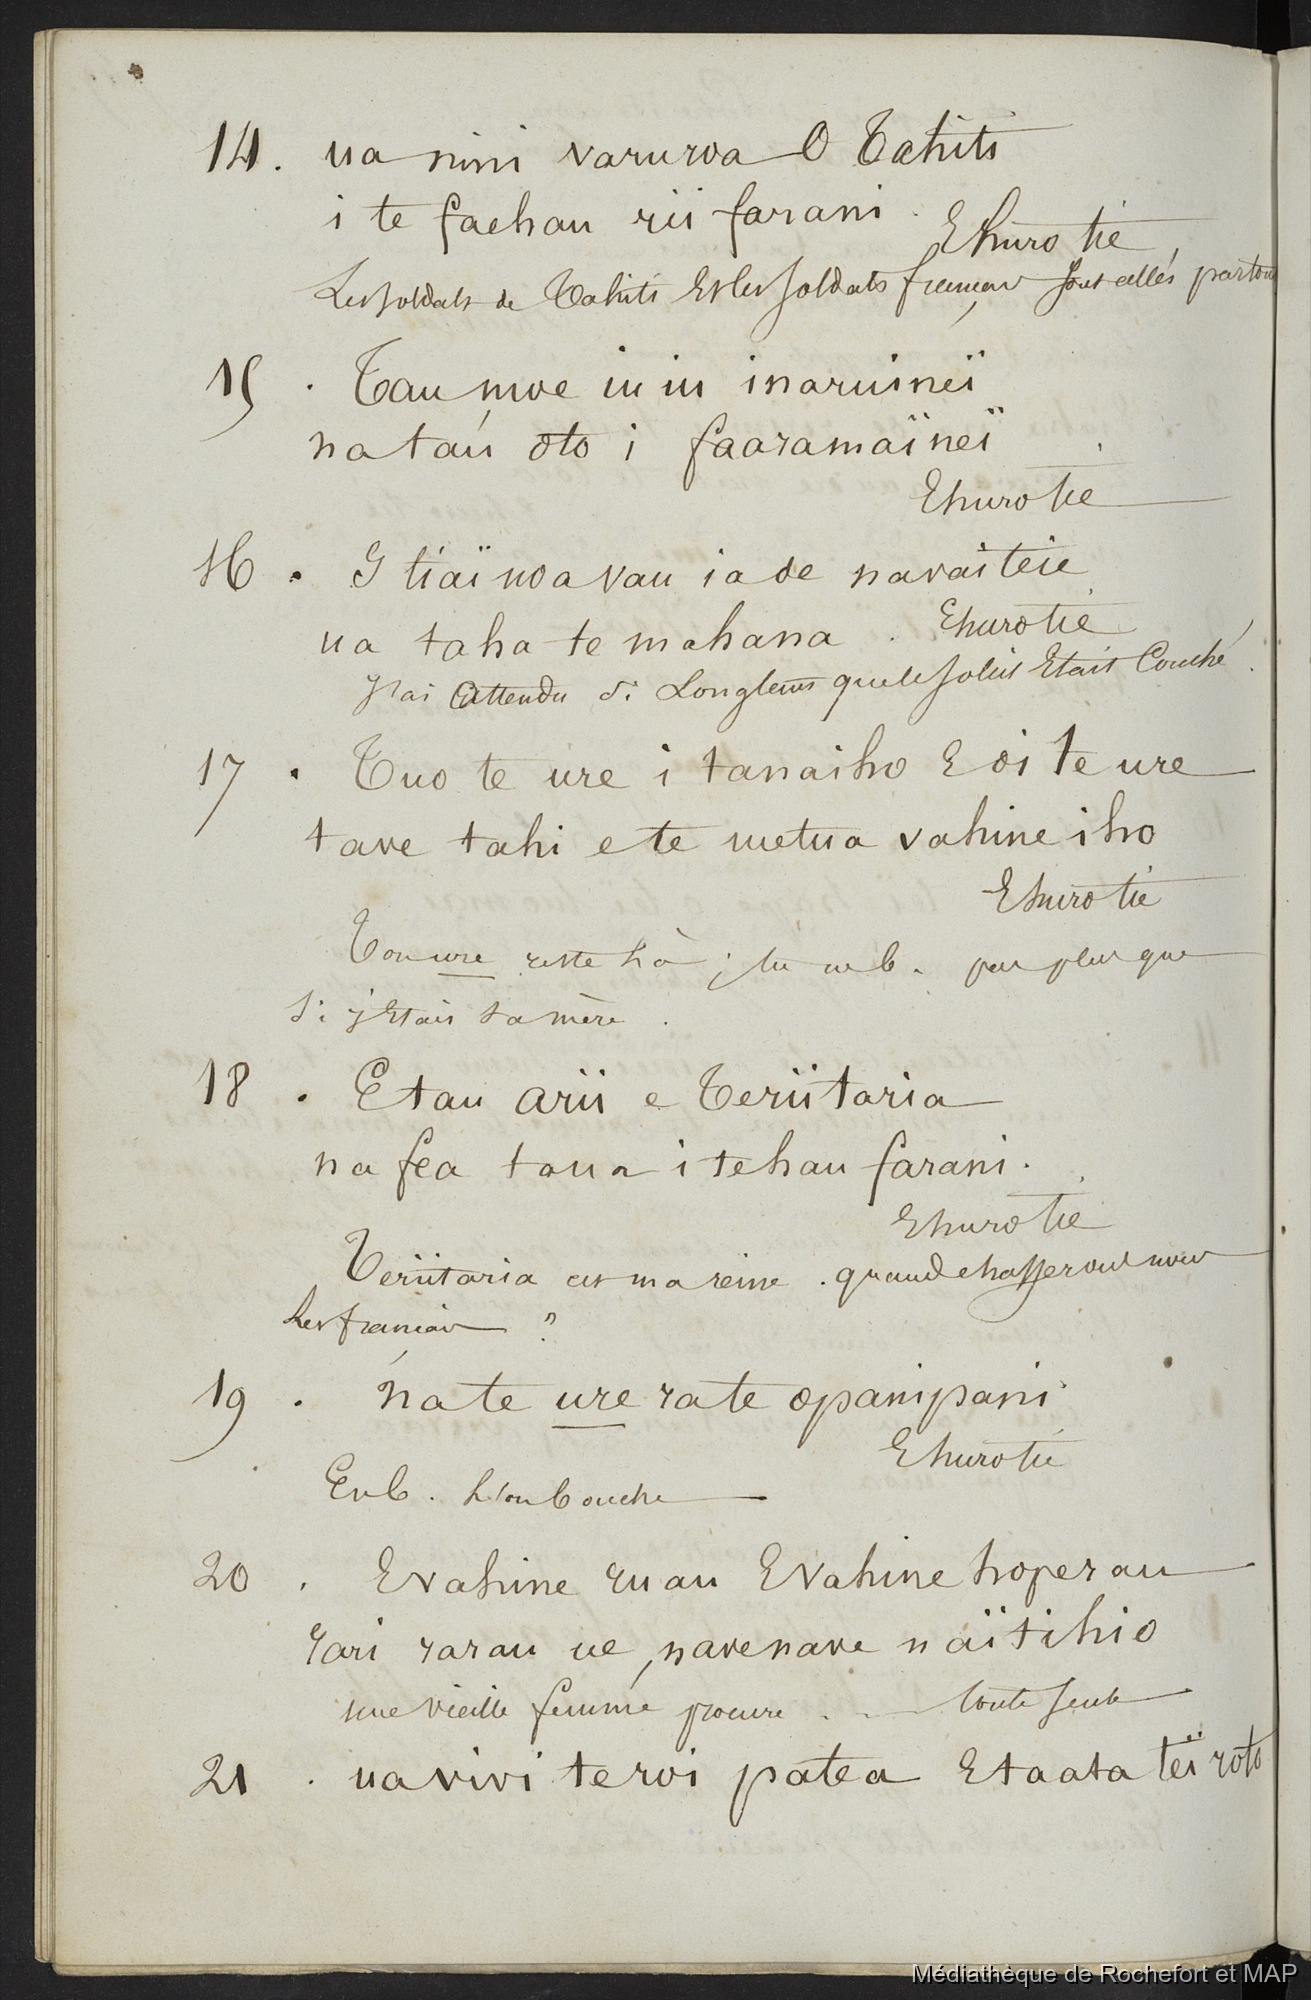 14. ua nini varuroa O Tahiti
i te faehau rii farani.
Ehurotie
Les soldats de Tahiti Et les soldats français sont allés partout
15. Tau moe iu iu inaruineï
natau oto i faaramaïneï.
Ehurotie
16. I tiaï noa vau iaoe navaiteie
ua taha te mahana.
Ehurotie
J'ai attendu si Longtems que le soleil Etait Couché.
17. Tuo te ure i tanaiho E oi te ure
tave tahi e te metua vahine iho
Ehurotie
Ton ure reste là ; tu me b. pas plus que
si j'Etais ta mère.
18. E tau arii e Teriitaria
na fea taua i tehau farani.
Ehurotie
Teriitaria est ma reine. quand chasserons nous
Les français ?
19. Na te ure rate opanipani
Ehurotie
En b. L'on bouche
20. E vahine ruau E Vahine hoperau
rari rarau ue, navenave naïtihio
une vieille femme procure . toute seule
21. ua vivi teroi patea E taata teï roto
Médiathèque de Rochefort et MAP